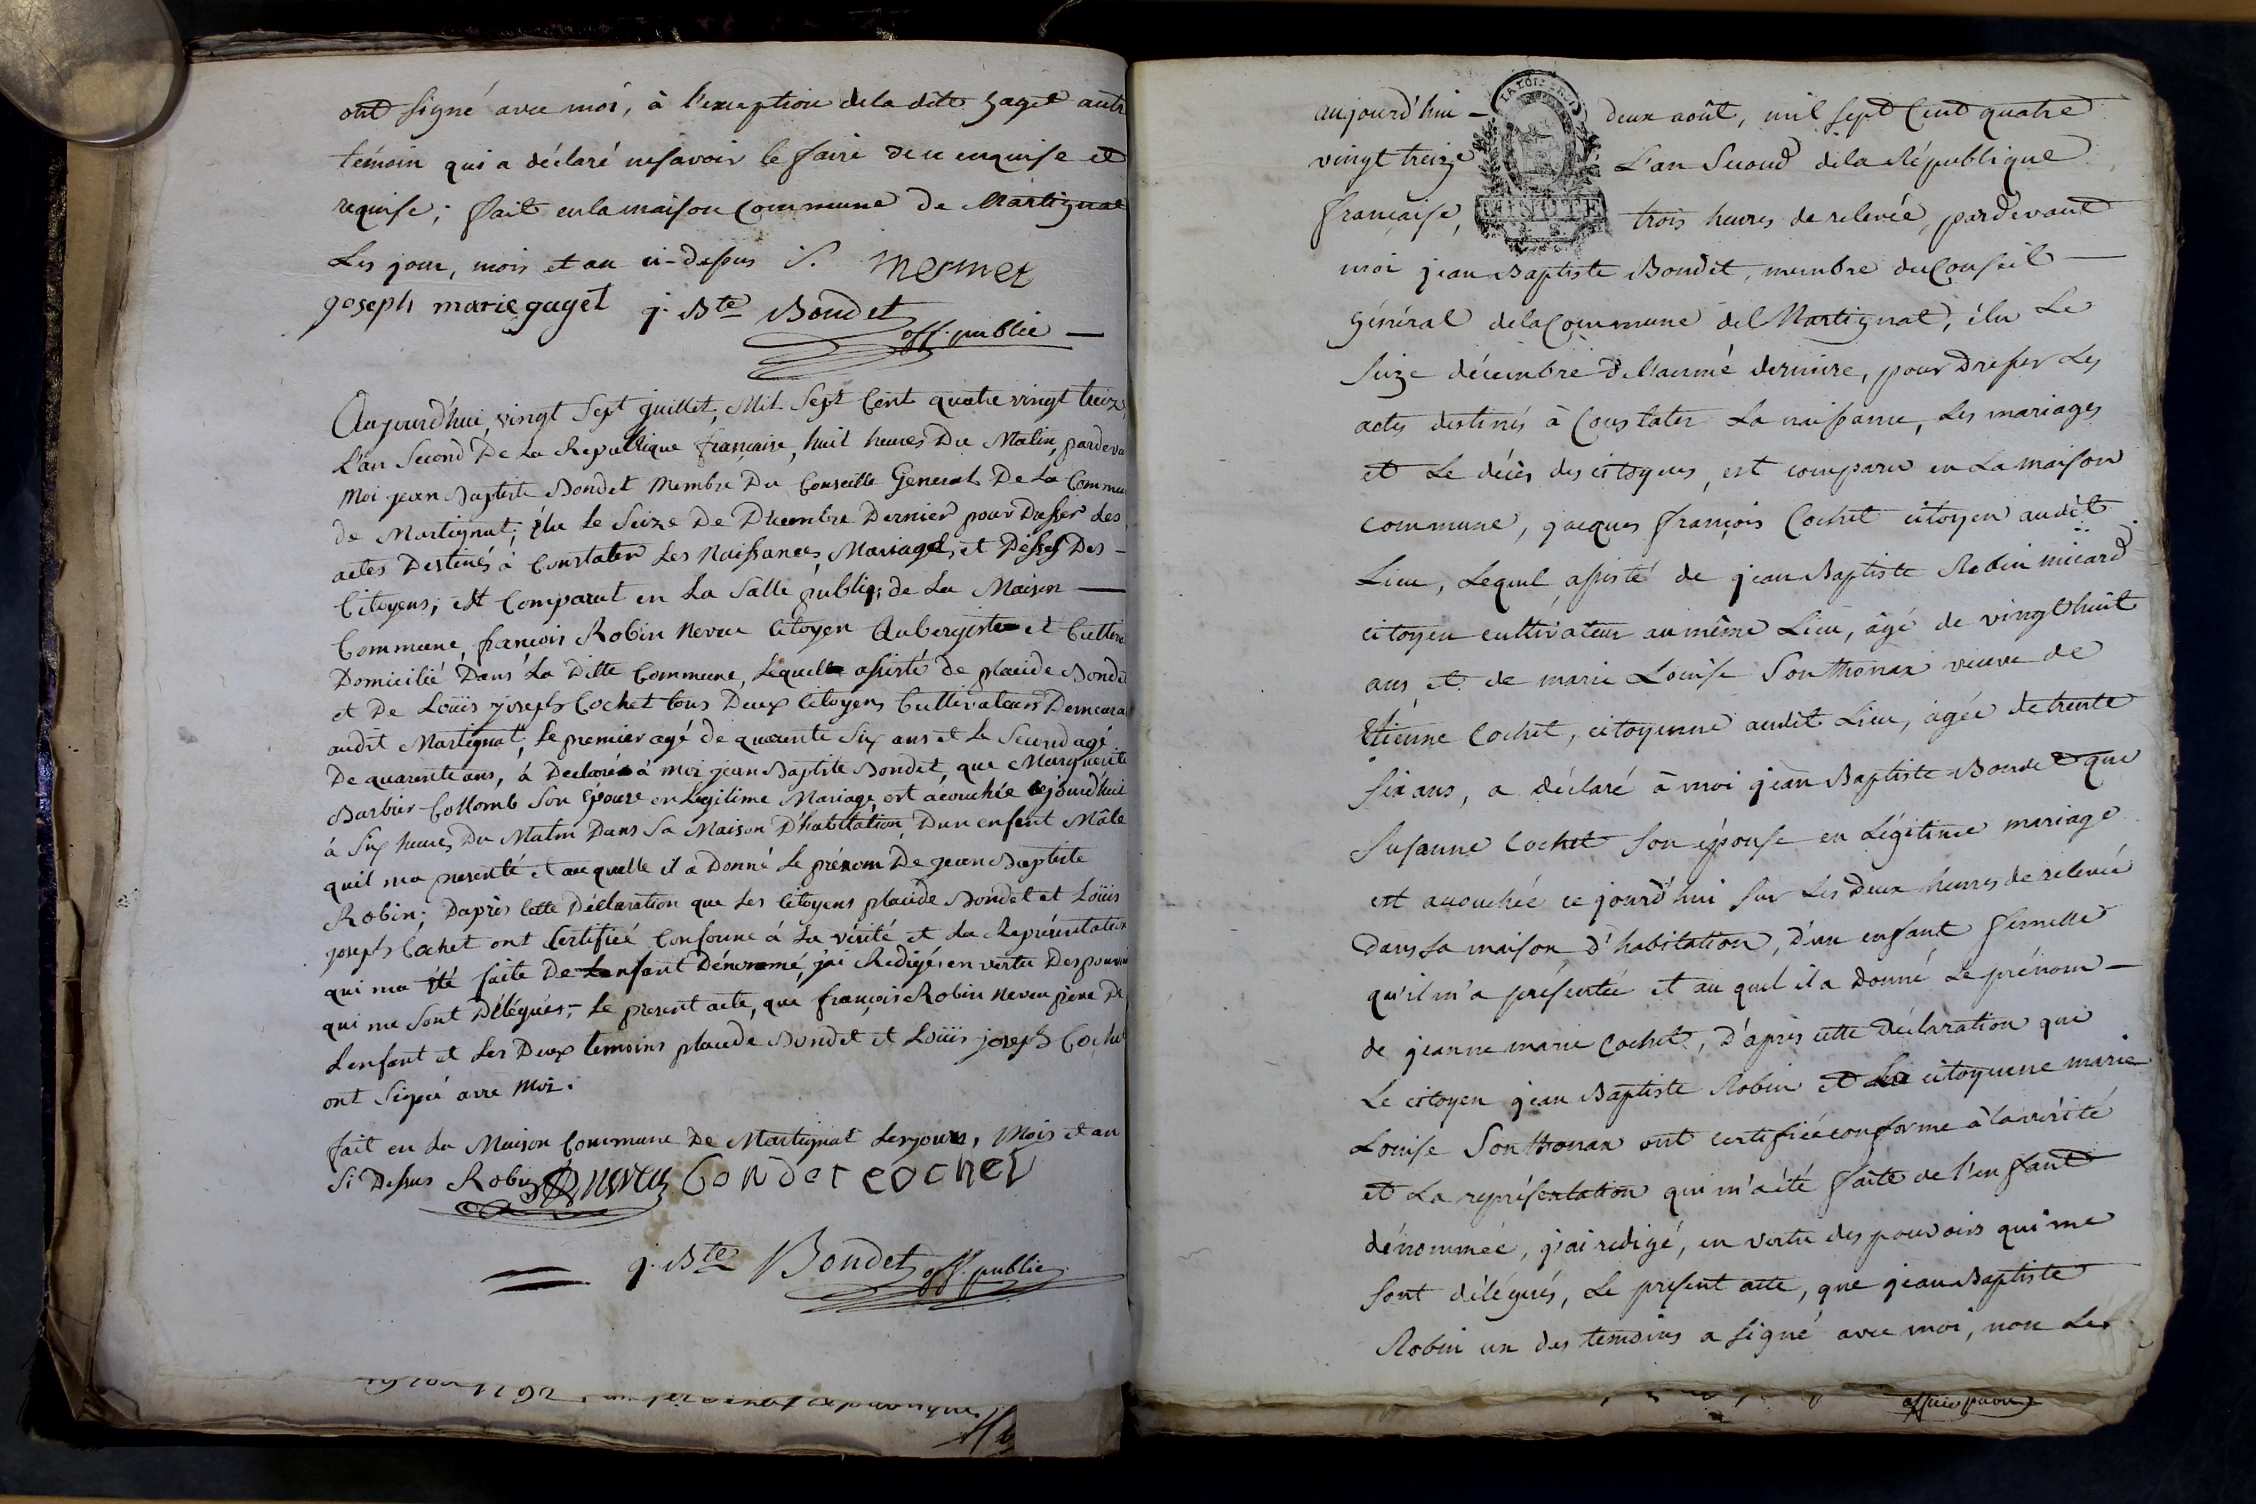 ont signé avec moi, à l'exception de la dite gaget autr
témoin qui a déclaré ne savoir le faire de ce enquise et
requise; fait en la maison Commune de Martignat
Les jour, mois et an ci-dessus
mermet
joseph marie gaget j. Bte Bondet
off. public
Aujourd'hui, vingt Sept juillet, Mil Sept Cent quatre vingt treize,
L'an Second De La Republique française, huit heures Du Matin, pardeva
Moi jean Baptiste Bondet Membre Du Conseille General De La Commu
de Martignat, élu le Seize De Decembre Dernier pour Dresser Les
actes Destinés à Constater Les Naissances, Mariages, et Desses Des
Citoyens, est Comparut en La Salle publiq; de La Maison
Commune, françois Robin Neveu Citoyen Aubergiste et Cultiv
Domicilié Dans La Ditte Commune, Lequelle assisté de placide Bonde
et De Loüis joseph Cochet tous Deux Citoyens Cultivateurs Demeura
audit Martignat, Le premier agé de quarente Six ans et Le Second agé
De quarente ans, à Declaré à moi jean Baptiste Bondet, que Marguerite
Barbier-Collomb Son Epouse en Legitime Mariage, est acouchée cejourd'hui
à Six heures Du Matin Dans Sa Maison D'habitation, D'un enfent Mâle
quil ma presenté et auquelle il a Donné Le prénom De jean Baptiste
Robin; Daprès Cette Déclaration que Les Citoyens placide Bondet et Loüis
joseph Cochet ont Certifieé Conforme à La vérité et La Représentation
qui ma été faite De Lenfant Dénommé, jai Redigé, en vertu Des pouvoi
qui me Sont Délégués, Le present acte, que françois Robin Neveu pere De
Lenfent et Les Deux temoins placide Bondet et Loüis joseph Coche
ont Signé avec Moi.
fait en La Maison Commune De Martignat Les jours, Mois et an
Si Dessus Robin Neveu Bondet cochet
j. Bte Bondet off. public
aujourd'hui deux août, mil sept Cent quatre
vingt treize L'an Second de la République
française, trois heures de relevée, pardevant
moi jean Baptiste Bondet, membre du Conseil
Général de la Commune de Martignat, élu Le
Seize décembre de l'année derniere, pour dresser Les
actes destinés à Constater La naissance, Les mariages
et Le décès des citoyens, est comparu en La maison
commune, jacques françois Cochet citoyen audit
Lieu, Lequel assisté de jean Baptiste Robin micard
citoyen cultivateur au même Lieu, âgé de vingt huit
ans et de marie Louise Sonthonax veuve de
Etienne Cochet, citoyenne audit Lieu, agée de trente
six ans, a déclaré à moi jean Baptiste Bondet que
Susanne Cochet son épouse en Légitime mariage
est accouchée ce jourd'hui sur Les deux heures de relevée
dans sa maison d'habitation, d'un enfant femelle
qu'il m'a présentée et au quel il a donné Le prénom
de jeanne marie Cochet, d'après cette déclaration que
Le citoyen jean Baptiste Robin et La citoyenne marie
Louise Sonthonax ont certifiée conforme à la vérité
et La représentation qui m'a été faite de l'enfant
dénommée, j'ai redigé, en vertu des pouvoirs qui me
sont délégués, Le présent acte, que jean Baptiste
Robin un des temoins a signé avec moi, non Les